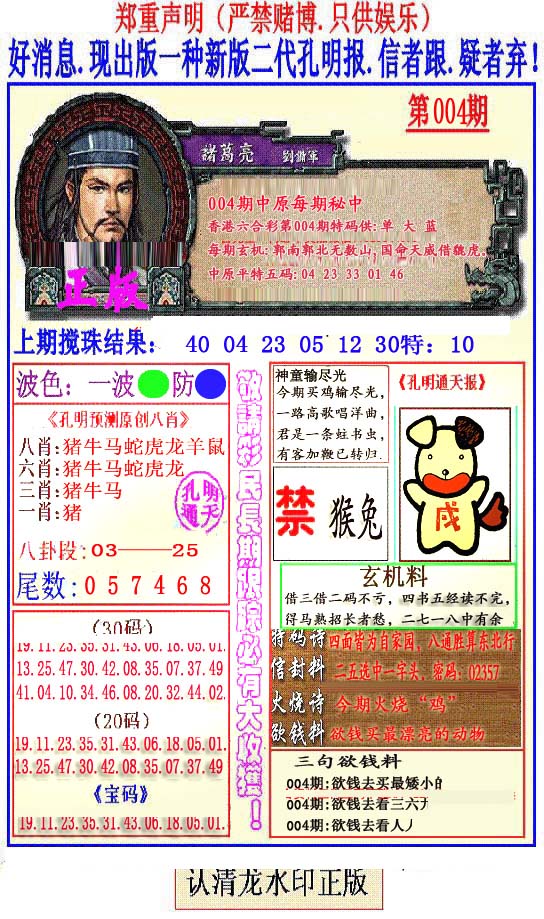 郑重声明（严禁赌博.只供娱乐）
好消息.现出版一种新版二代孔明报.信者跟.疑者弃!
第004期
諸葛亮 劉備軍
004期中原每期秘中
香港六合彩第004期特码供:单 大 蓝
每期玄机:郭南郭北无数山,国命天威借魏虎.
中原平特五码:04 23 33 01 46
正版
上期搅珠结果: 40 04 23 05 12 30特: 10
波色:一波 防
《孔明预测原创八肖》
八肖:猪牛马蛇虎龙羊鼠
六肖:猪牛马蛇虎龙
三肖:猪牛马
一肖:猪
孔明通天
八卦段:03——25
尾数:057468
(30码)
19.11.23.35.31.43.06.18.05.01.
13.25.47.30.42.08.35.07.37.49
41.04.10.34.46.08.20.32.44.02.
(20码)
19.11.23.35.31.43.06.18.05.01.
13.25.47.30.42.08.35.07.37.49
《宝码》
19.11.23.35.31.43.06.18.05.01.
敬請彩民長期跟踪必有大收獲！
神童输尽光
今期买鸡输尽光,
一路高歌唱洋曲,
君是一条蛀书虫,
有客加鞭已转归.
《孔明通天报》
禁 猴兔
戌
玄机料
借三借二码不亏，四书五经读不完,
得马熟招长者愁，二七一八中有余
特码诗 四面皆为自家园，八通胜算东北行
信封料 二五选中一字头，密码：02357
火烧诗 今期火烧“鸡”
欲钱料 欲钱买最漂亮的动物
三句欲钱料
004期:欲钱去买最矮小的
004期:欲钱去看三六
004期:欲钱去看人
认清龙水印正版